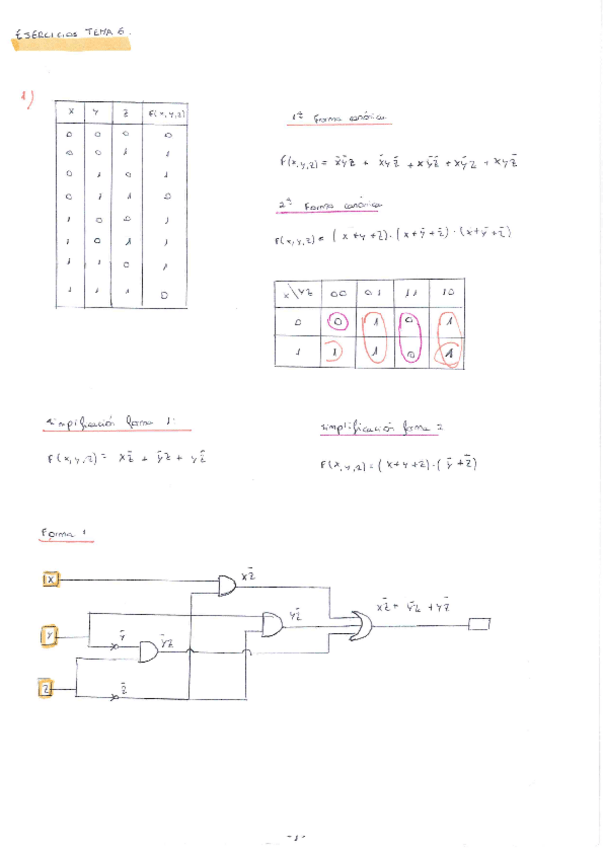 EJERCICIOS TEMA 6.
1)
X Y Z F(x,y,z)
0 0 0 0
0 0 1 1
0 1 0 1
0 1 1 0
1 0 0 1
1 0 1 1
1 1 0 1
1 1 1 0
1ª Forma canónica
F(x,y,z) = x̄ȳz + x̄yz̄ + xȳz̄ + xȳz + xyz̄
2ª Forma canónica
F(x,y,z) = (x+y+z)·(x+ȳ+z̄)·(x̄+ȳ+z̄)
x\yz 00 01 11 10
0 0 1 0 1
1 1 1 0 1
Simplificación forma 1
F(x,y,z) = xz̄ + ȳz + yz̄
Simplificación forma 2
F(x,y,z) = (x+y+z)·(ȳ+z̄)
Forma 1
X
xz̄
Y
ȳ
ȳz
yz̄
xz̄ + ȳz + yz̄
Z
z̄
-1-